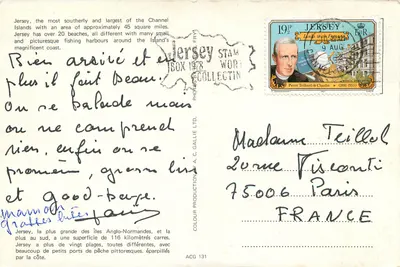 Jersey, the most southerly and largest of the Channel
Islands with an area of approximately 45 square miles.
Jersey has over 20 beaches, all different with many small
and picturesque fishing harbours around the Island's
magnificent coast.
Bien arrivé et en
plus il fait beau.
On se balade mais
on ne comprend
rien, enfin on se
promène, gross bis
et good-baye.
maman
Jersey, la plus grande des Iles Anglo-Normandes, et la
plus au sud, a une superficie de 116 kilomètres carrés.
Jersey a plus de vingt plages, toutes différentes, avec
beaucoup de petits ports de pêche pittoresques, éparpillés
par la côte.
COLOUR PRODUCTION BY A. C. GALLIE LTD.
ACG 131
Jersey STAMP
BOX 1978 WORLD
COLLECTIN
19½p JERSEY
9 AUG
Madame Teillol
20 rue Visconti
75006 Paris
FRANCE